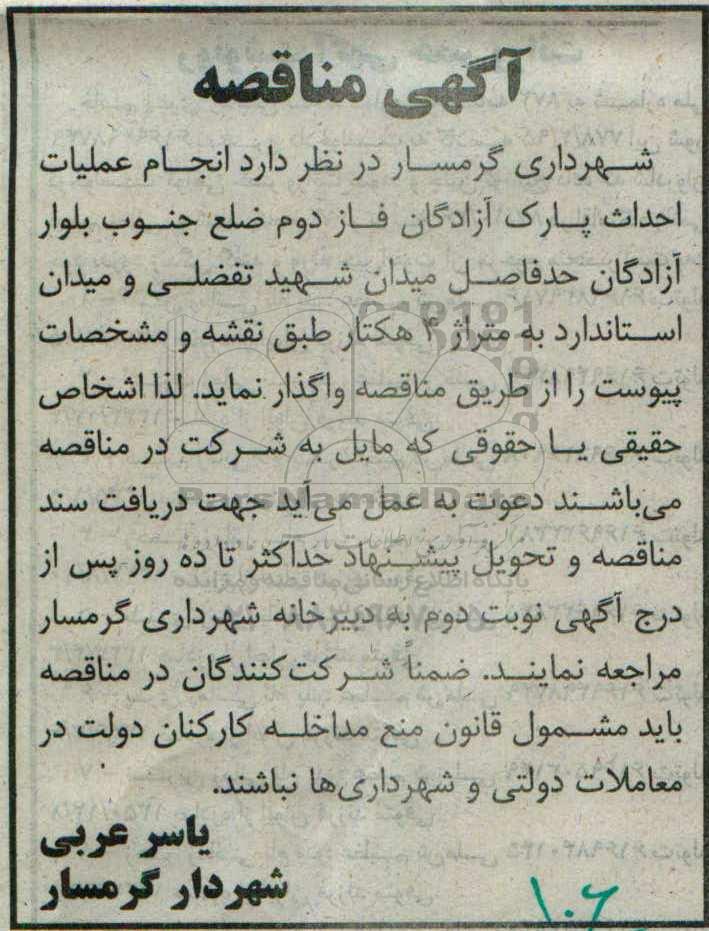 آگهی مناقصه
شهرداری گرمسار در نظر دارد انجام عملیات
احداث پارک آزادگان فاز دوم ضلع جنوب بلوار
آزادگان حدفاصل میدان شهید تفضلی و میدان
استاندارد به متراژ ۴ هکتار طبق نقشه و مشخصات
پیوست را از طریق مناقصه واگذار نماید. لذا اشخاص
حقیقی یا حقوقی که مایل به شرکت در مناقصه
می‌باشند دعوت به عمل می‌آید جهت دریافت سند
مناقصه و تحویل پیشنهاد حداکثر تا ده روز پس از
درج آگهی نوبت دوم به دبیرخانه شهرداری گرمسار
مراجعه نمایند. ضمناً شرکت‌کنندگان در مناقصه
باید مشمول قانون منع مداخله کارکنان دولت در
معاملات دولتی و شهرداری‌ها نباشند.
یاسر عربی
شهردار گرمسار
۱۰۶
ParsNamadData